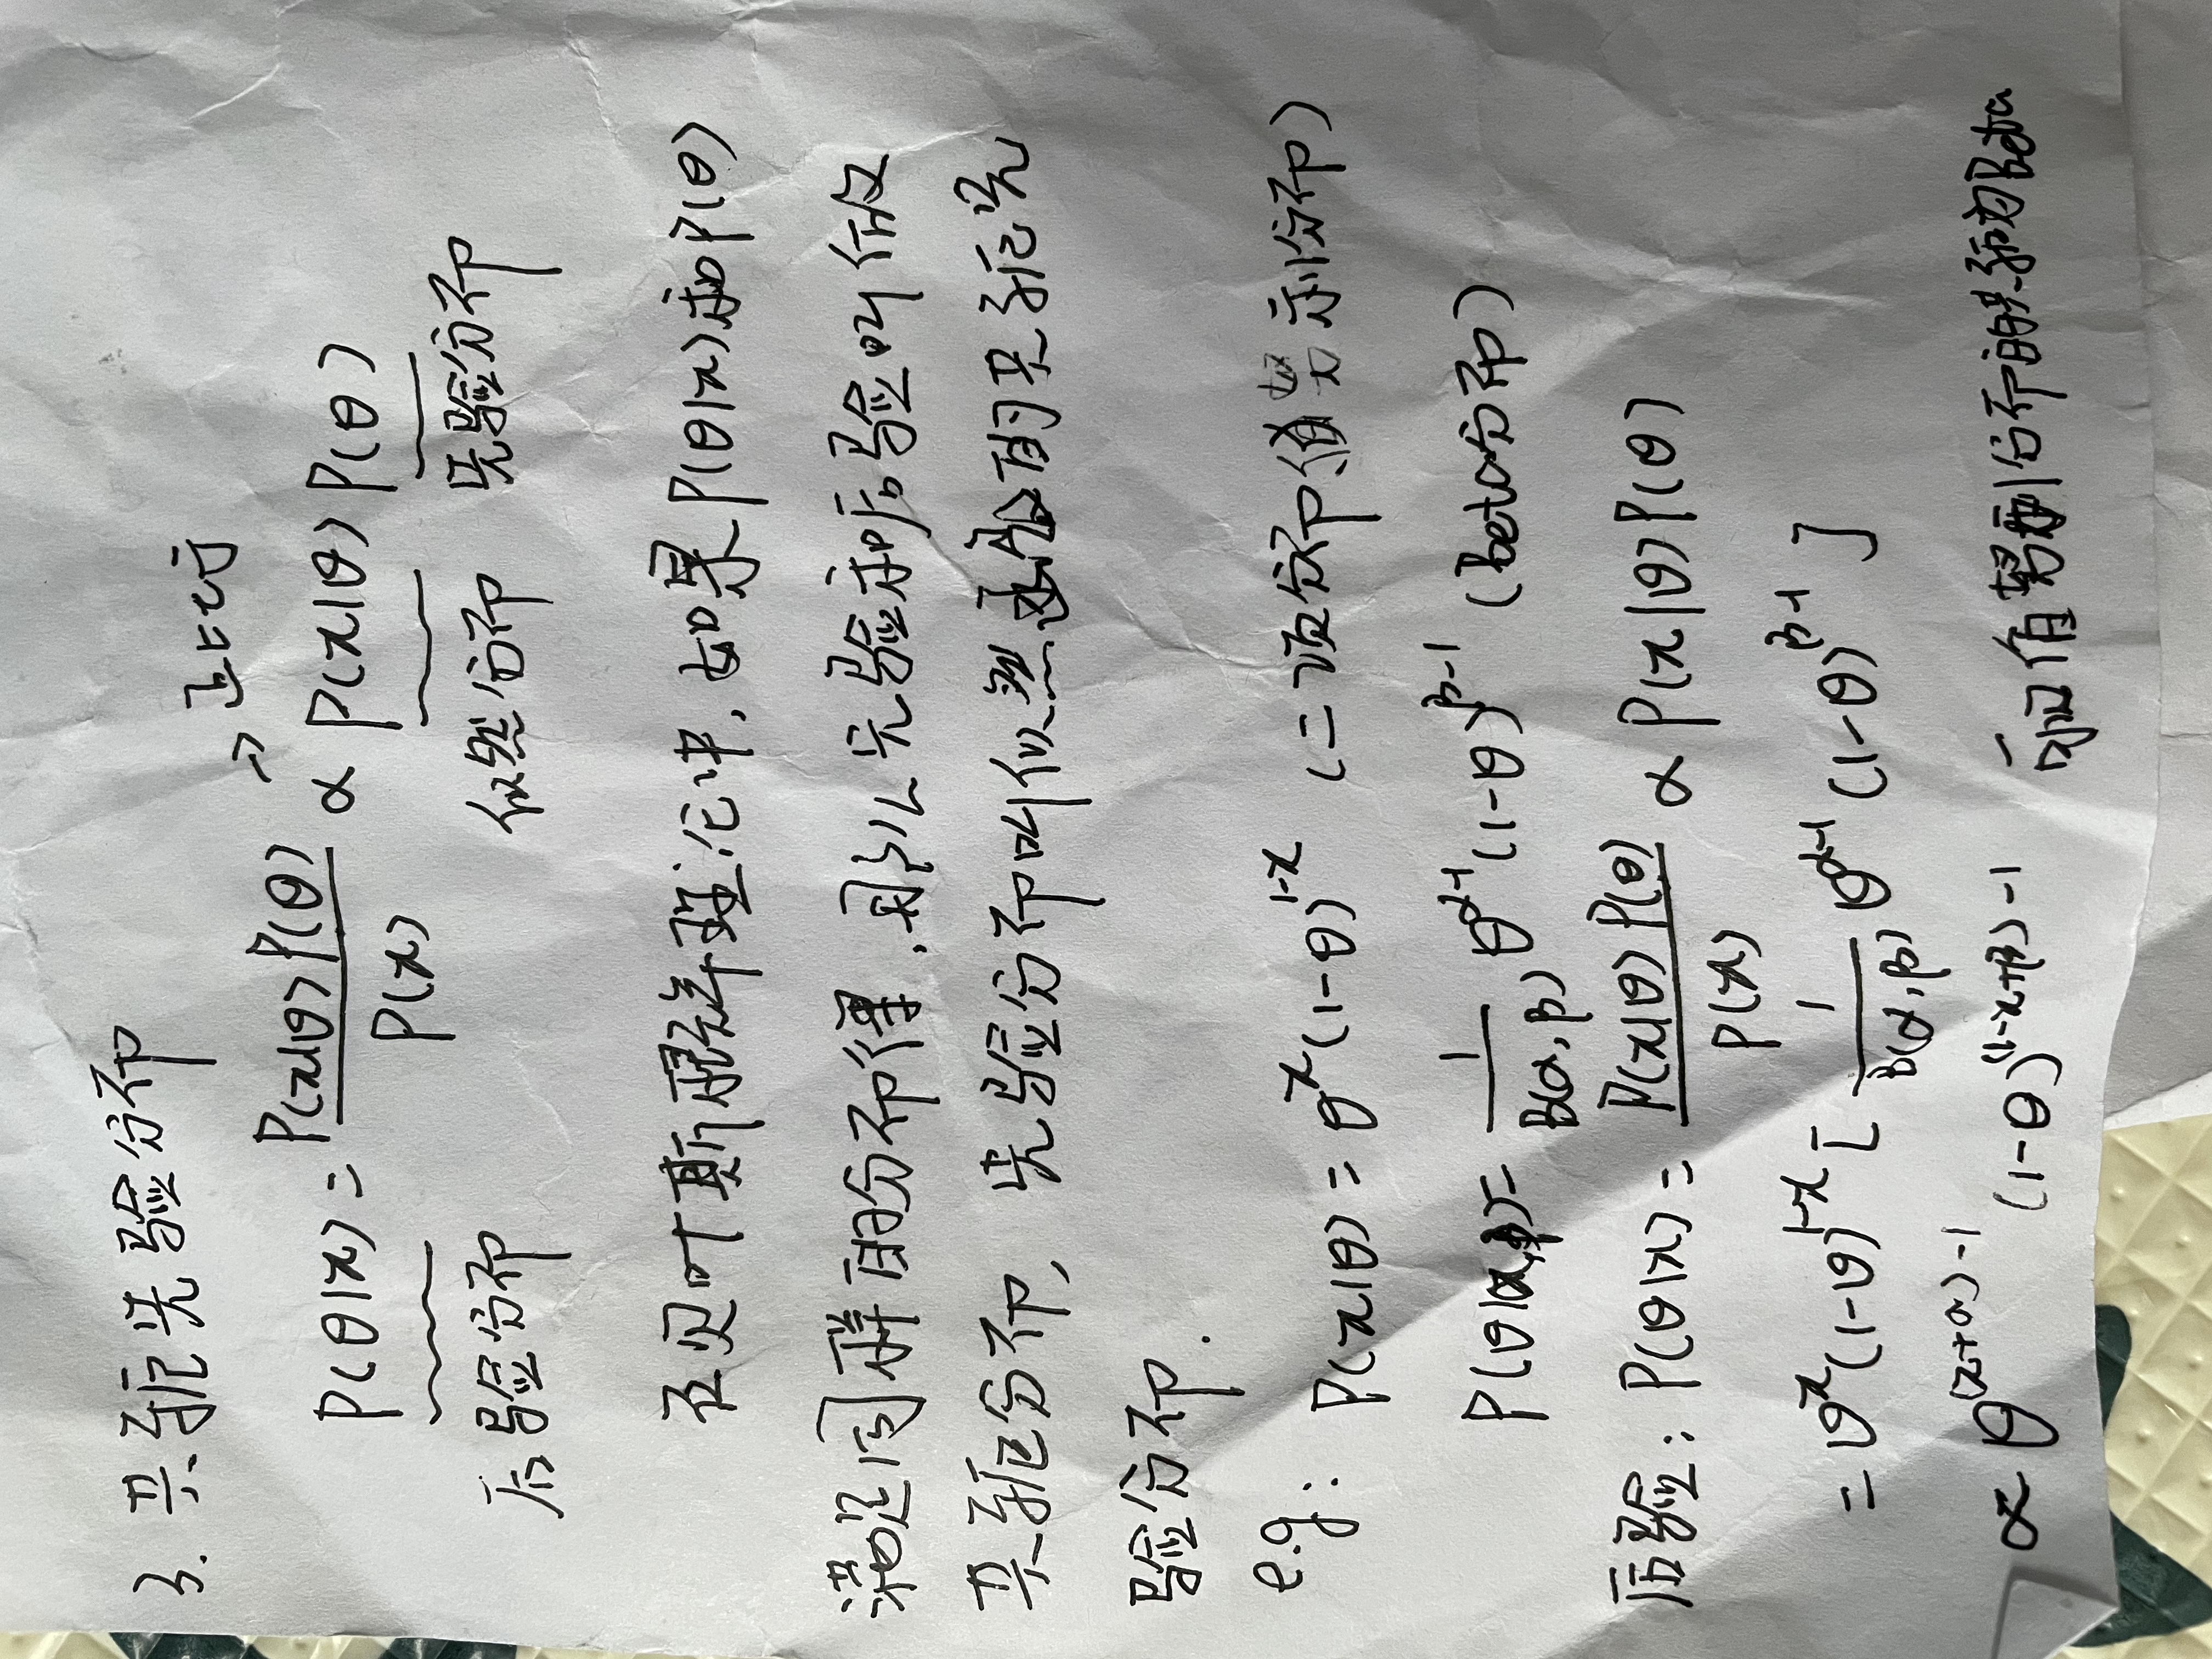 3. 共轭先验分布
→ 正比于
P(θ|x) = P(x|θ) P(θ) / P(x) ∝ P(x|θ) P(θ)
后验分布 似然分布 先验分布
在贝叶斯概率理论中, 如果P(θ|x)和P(θ)
满足同样的分布律, 那么先验和后验叫做
共轭分布, 先验分布叫似然函数的共轭先
验分布.
e.g: P(x|θ) = θ^x (1-θ)^{1-x} (二项分布 值努利分布)
P(θ|α,β) = 1/B(α,β) θ^{α-1} (1-θ)^{β-1} (Beta分布)
后验: P(θ|x) = P(x|θ) P(θ) / P(x) ∝ P(x|θ) P(θ)
= θ^x (1-θ)^{1-x} [ 1/B(α,β) θ^{α-1} (1-θ)^{β-1} ]
∝ θ^{(x+α)-1} (1-θ)^{(1-x+β)-1} 可知值努利分布的共轭为Beta